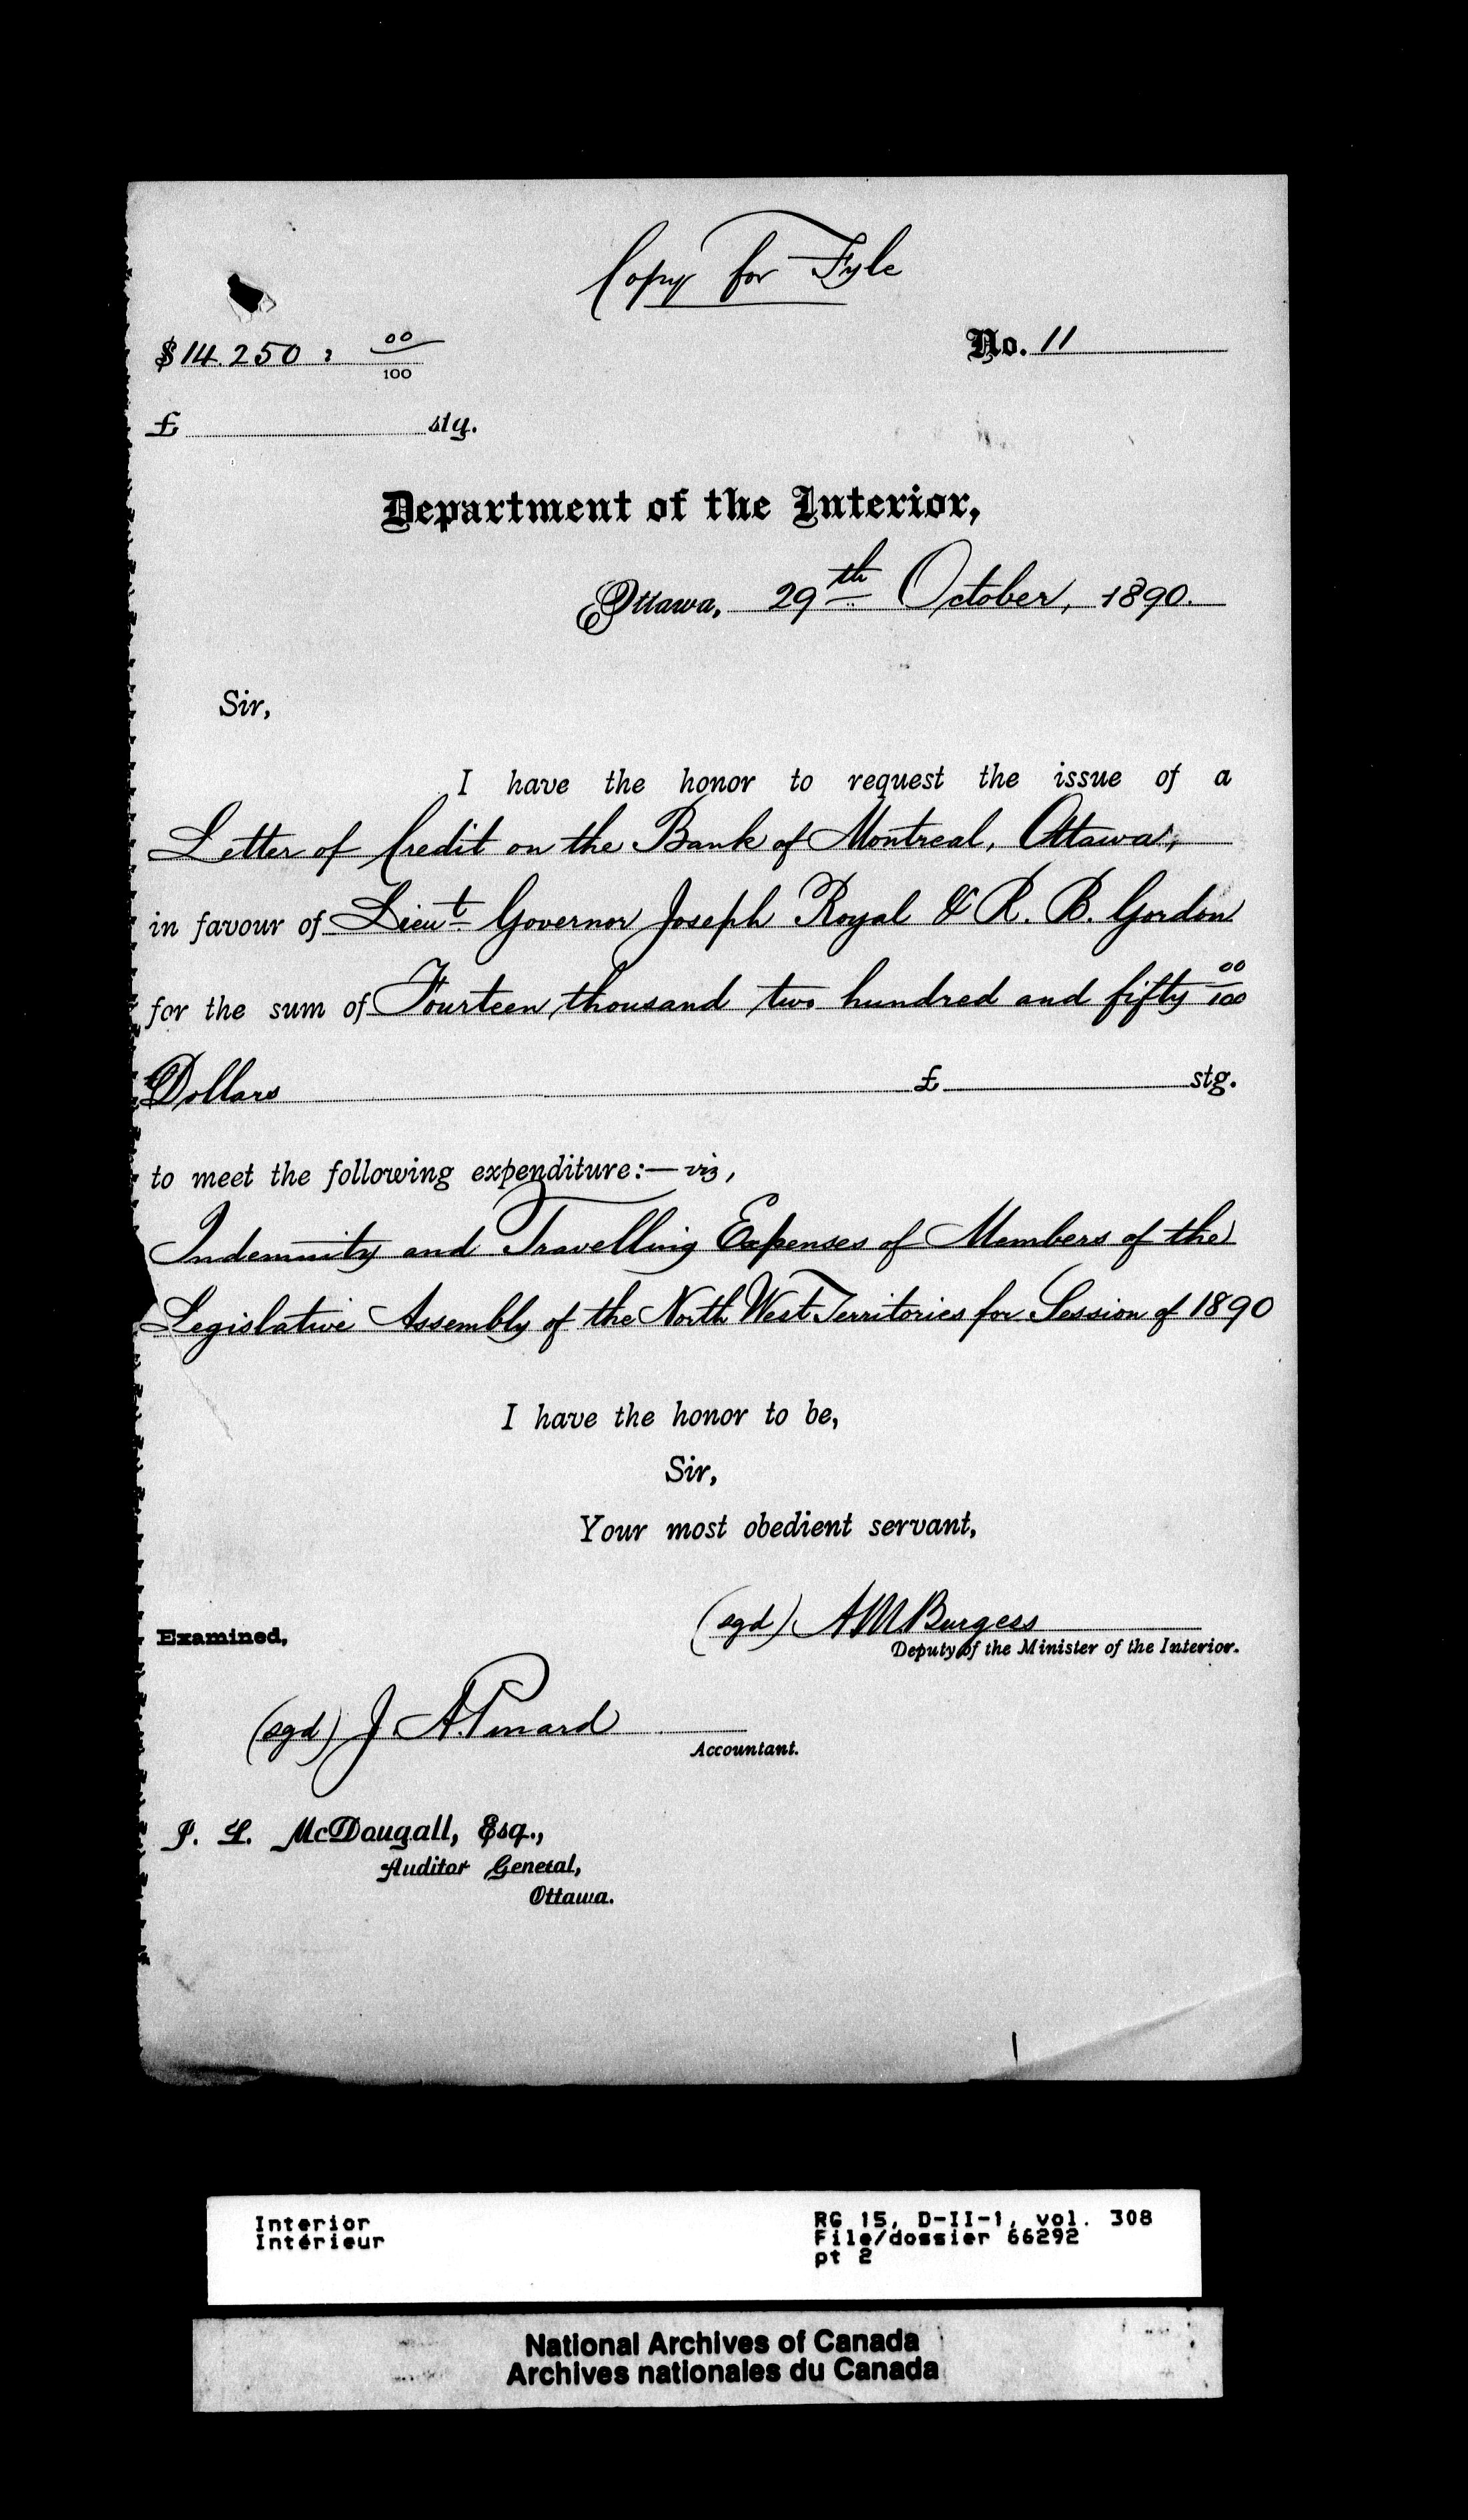 Copy for Fyle
$14.250 : 00/100
No. 11
£ stg.
Department of the Interior,
Ottawa, 29th October, 1890.
Sir,
I have the honor to request the issue of a
Letter of Credit on the Bank of Montreal, Ottawa,
in favour of Lieut Governor Joseph Royal & R. B. Gordon
for the sum of Fourteen thousand two hundred and fifty 00/100
Dollars £ stg.
to meet the following expenditure:— viz,
Indemnity and Travelling Expenses of Members of the
Legislative Assembly of the North West Territories for Session of 1890
I have the honor to be,
Sir,
Your most obedient servant,
(sgd) A M Burgess
Deputy of the Minister of the Interior.
Examined,
(sgd) J. A. Pinard
Accountant.
J. L. McDougall, Esq.,
Auditor General,
Ottawa.
Interior
Intérieur
RG 15, D-II-1, vol. 308
File/dossier 66292
pt 2
National Archives of Canada
Archives nationales du Canada